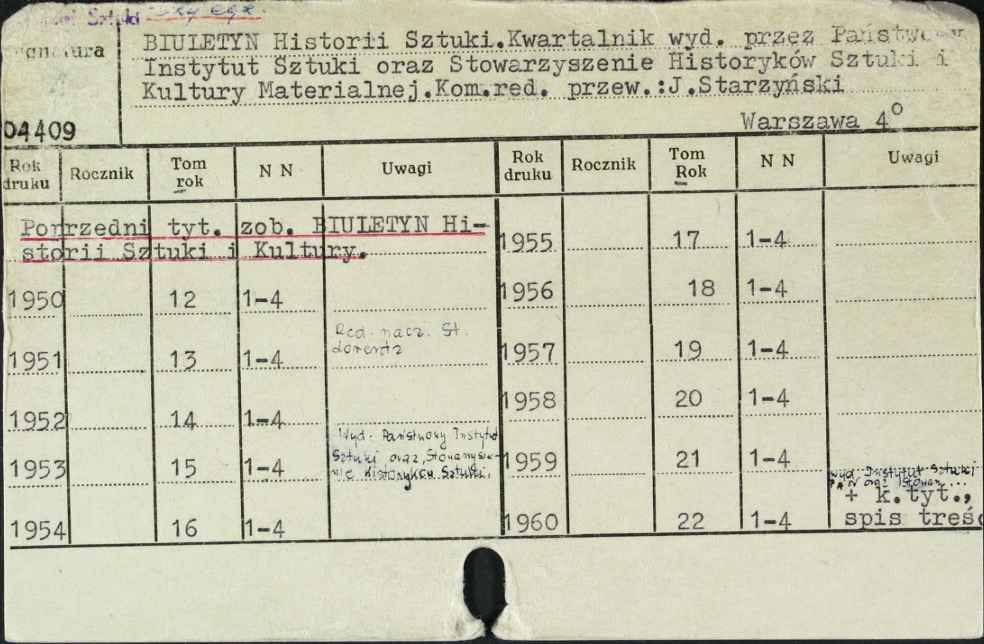 Sztuki
Sygnatura
04409
BIULETYN Historii Sztuki.Kwartalnik wyd. przez Państwowy
Instytut Sztuki oraz Stowarzyszenie Historyków Sztuki i
Kultury Materialnej.Kom.red. przew.:J.Starzyński
Warszawa 4°
Rok druku Rocznik Tom rok N N Uwagi Rok druku Rocznik Tom Rok N N Uwagi
Poprzedni tyt. zob. BIULETYN Hi-
storii Sztuki i Kultury.
1950 12 1-4
1951 13 1-4 Red. nacz. St. Lorentz
1952 14 1-4
1953 15 1-4 Wyd. Państwowy Instytut
Sztuki oraz Stowarzysze-
nie Historyków Sztuki.
1954 16 1-4
1955 17 1-4
1956 18 1-4
1957 19 1-4
1958 20 1-4
1959 21 1-4
wyd. Instytut Sztuki
PAN oraz Stowarz...
1960 22 1-4 + k.tyt.,
spis treśc